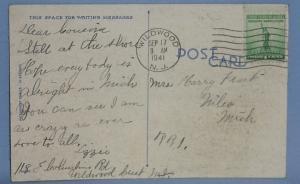 THIS SPACE FOR WRITING MESSAGES
Dear Cousins
Still at the Shore
Hope everybody is
alright in Mich
You can see I am
as crazy as ever
love to all.
Lizzie
Rd
Wildwood Crest
WILDWOOD
SEP 17
AM
1941
N.J.
POST CARD
Mrs Harry
Niles
Mich